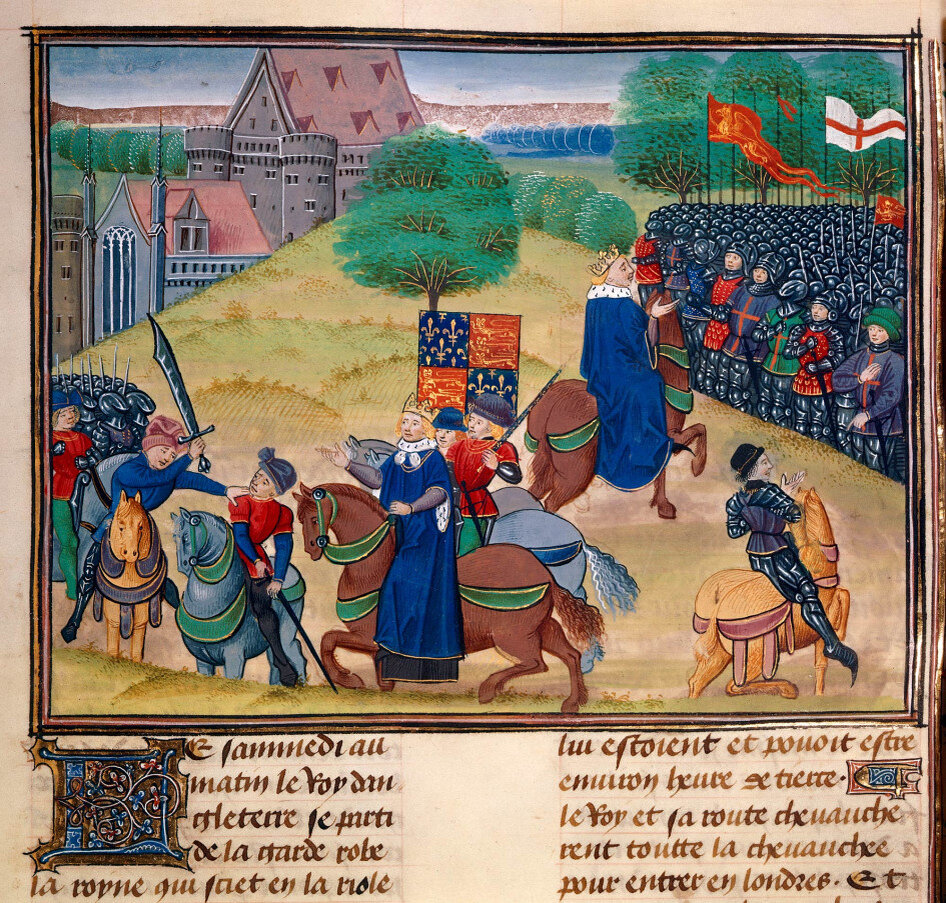 Le sammedi au
matin le Roy dan
gleterre se parti
de la garde robe
la royne qui siet en la riole
lui estoient et pouoit estre
enuiron heure de tierce.
le Roy et sa route cheuauche
rent toutte la cheuauchee
pour entrer en londres. Et